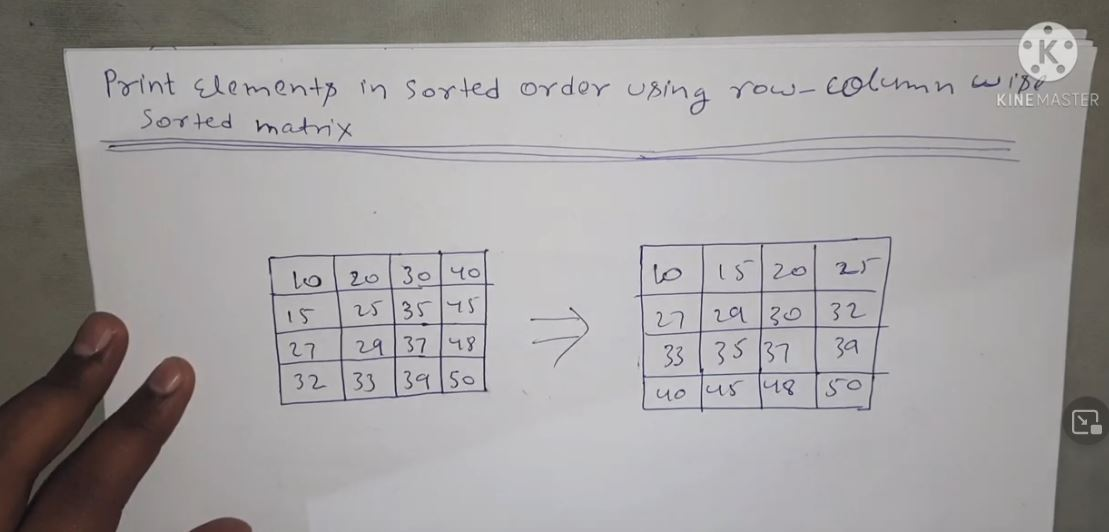 Print Elements in Sorted order using row-column wise
Sorted matrix
K
KINEMASTER
10 20 30 40
15 25 35 45
27 29 37 48
32 33 39 50
10 15 20 25
27 29 30 32
33 35 37 39
40 45 48 50